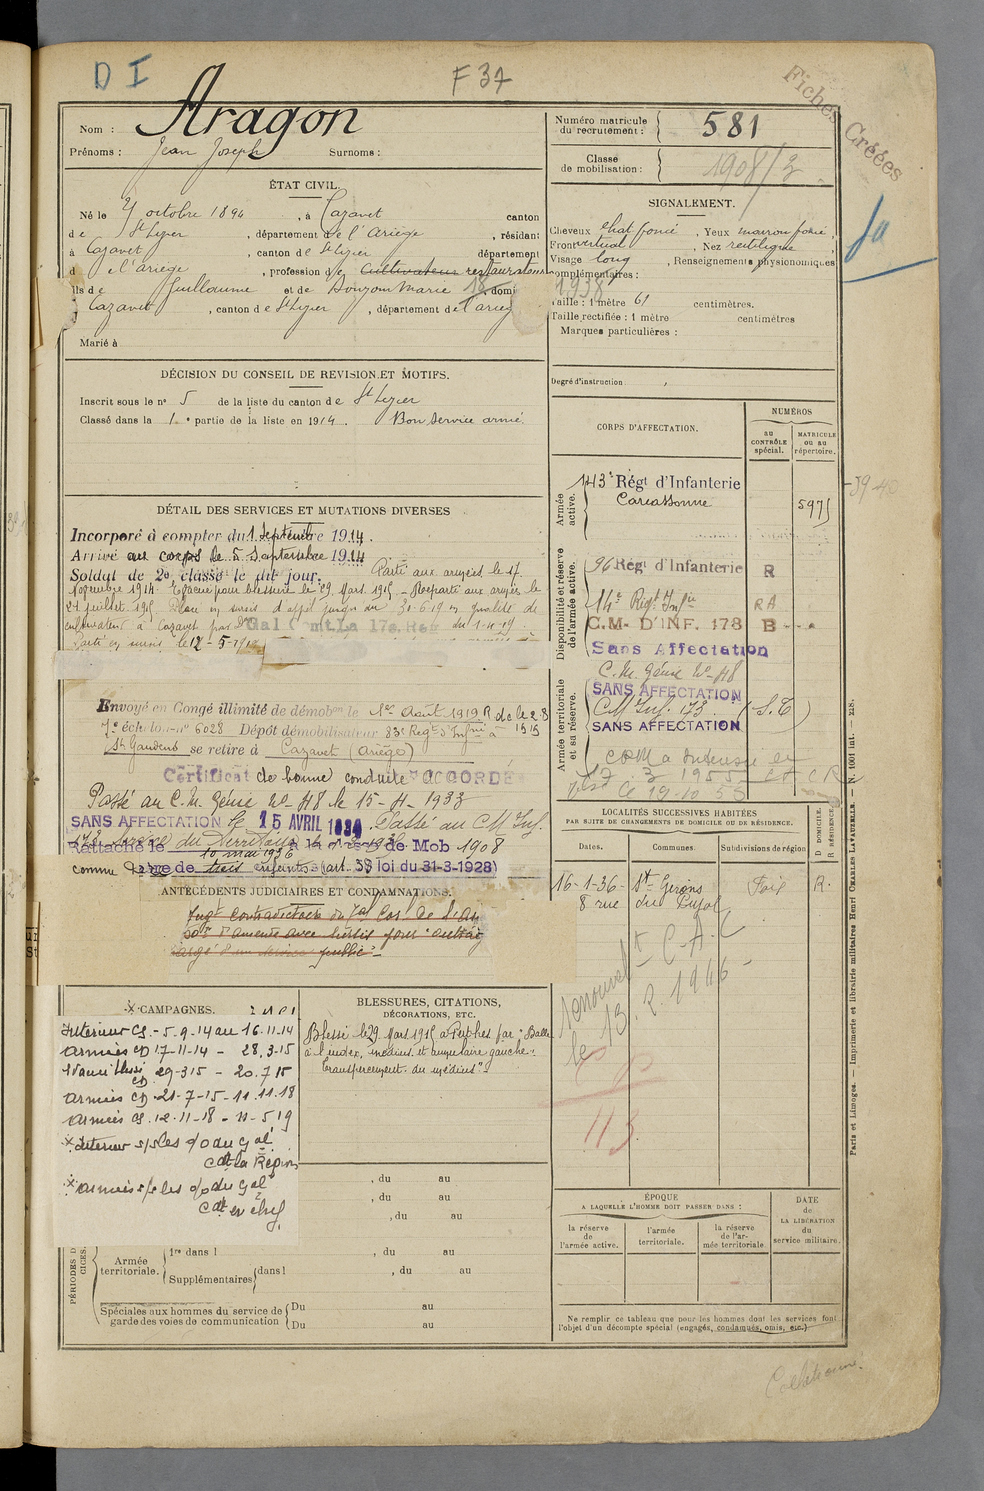 D I
F 37
Fiches Créées
Nom : Aragon
Prénoms : Jean Joseph Surnoms :
Numéro matricule du recrutement : 581
Classe de mobilisation : 1908/2
ÉTAT CIVIL.
Né le 7 octobre 1894, à Cazavet canton
de St Lizier, département de l'Ariège, résidant
à Cazavet, canton de St Lizier département
de l'ariège, profession de cultivateur restaurateur
fils de Guillaume et de Bonzom Marie 18, domi
Cazavet, canton de St Lizier, département de l'arieg
Marié à
SIGNALEMENT.
Cheveux chat. foncé, Yeux marron foncé,
Front vertical, Nez rectiligne
Visage long, Renseignements physionomiques
complémentaires :
1938
Taille : 1 mètre 61 centimètres.
Taille rectifiée : 1 mètre centimètres
Marques particulières :
Degré d'instruction
DÉCISION DU CONSEIL DE REVISION ET MOTIFS.
Inscrit sous le no 5 de la liste du canton de St Lizier
Classé dans la 1e partie de la liste en 1914. Bon service armé.
CORPS D'AFFECTATION.
NUMÉROS
AU CONTRÔLE spécial.
MATRICULE OU AU répertoire.
Armée active.
143e Régt d'Infanterie
Carcassonne
5975
39-40
Disponibilité et réserve de l'armée active.
96 Régt d'Infanterie R
14e Régt Infie RA
C.M. D'INF. 178 B
Sans Affectation
Armée territoriale et sa réserve.
C. M. Génie No 48
SANS AFFECTATION
CM Inf. 173 (S.T)
SANS AFFECTATION
DÉTAIL DES SERVICES ET MUTATIONS DIVERSES
Incorporé à compter du 1 Septembre 1914.
Arrivé au corps le 5 Septembre 1914
Soldat de 2e classe le dit jour. Parti aux armées le 17
Novembre 1914. Evacué pour blessure le 29 Mars 1915 - Reparti aux armées le
21 juillet 1915 Placé en sursis d'appel jusqu'au 30-6-19 en qualité de
cultivateur à Cazavet par Don Gal Comt La 17e Reg du 1-4-19
Parti en sursis le 12-5-1919
Envoyé en Congé illimité de démobon le 1er Août 1919 R de le 28
7e éch lo. no 6028 Dépôt démobilisateur 83e Regt d'Infrie à
St Gaudens se retire à Cazavet (Ariège)
Certificat de bonne conduite ACCORDÉ
Passé au C. M. Génie No 48 le 15-4-1933
SANS AFFECTATION le 15 AVRIL 1934. Passé au CM Inf.
Rattaché le 10 mai 1936 à la classe de Mob 1908
comme père de trois enfants (art. 58 loi du 31-3-1928)
ANTÉCÉDENTS JUDICIAIRES ET CONDAMNATIONS.
LOCALITÉS SUCCESSIVES HABITÉES
PAR SUITE DE CHANGEMENTS DE DOMICILE OU DE RÉSIDENCE.
Dates. Communes Subdivisions de région D DOMICILE. R RÉSIDENCE.
16-1-36 - St Girons Foix R.
8 rue du Pujol
renouvelt C.A.C
le 13. 2. 1946
113
CAMPAGNES.
Interieur CS. - 5.9.14 au 16.11.14
Armées CD 17-11-14 - 28.3-15
Evacué blessé CD 29-3 15 - 20.7 15
Armées CD 21-7-15 - 11.11.18
Armées CS. 12-11-18 - 11-5 19
Interieur s/s les o/o du Gal
Cdt la Région
Armées s/s les o/o du Gal
Cdt en chef
BLESSURES, CITATIONS, DÉCORATIONS, ETC.
Blessé le 29 Mars 1915 à Perthes par "Balle
à l'index, médius et annulaire gauche.
Transpercement du médius".
, du au
, du au
, du au
1re dans l , du au
Armée territoriale. Supplémentaires dans l , du au
Spéciales aux hommes du service de garde des voies de communication
Du au
Du au
ÉPOQUE
A LAQUELLE L'HOMME DOIT PASSER DANS :
la réserve de l'armée active.
l'armée territoriale.
la réserve de l'armée territoriale
DATE de LA LIBÉRATION du service militaire.
Ne remplir ce tableau que pour les hommes dont les services font
l'objet d'un décompte spécial (engagés, condamnés, omis, etc.)
Paris et Limoges. — Imprimerie et librairie militaires Henri CHARLES LAVAUZELLE. — N. 1001 int. — 218.